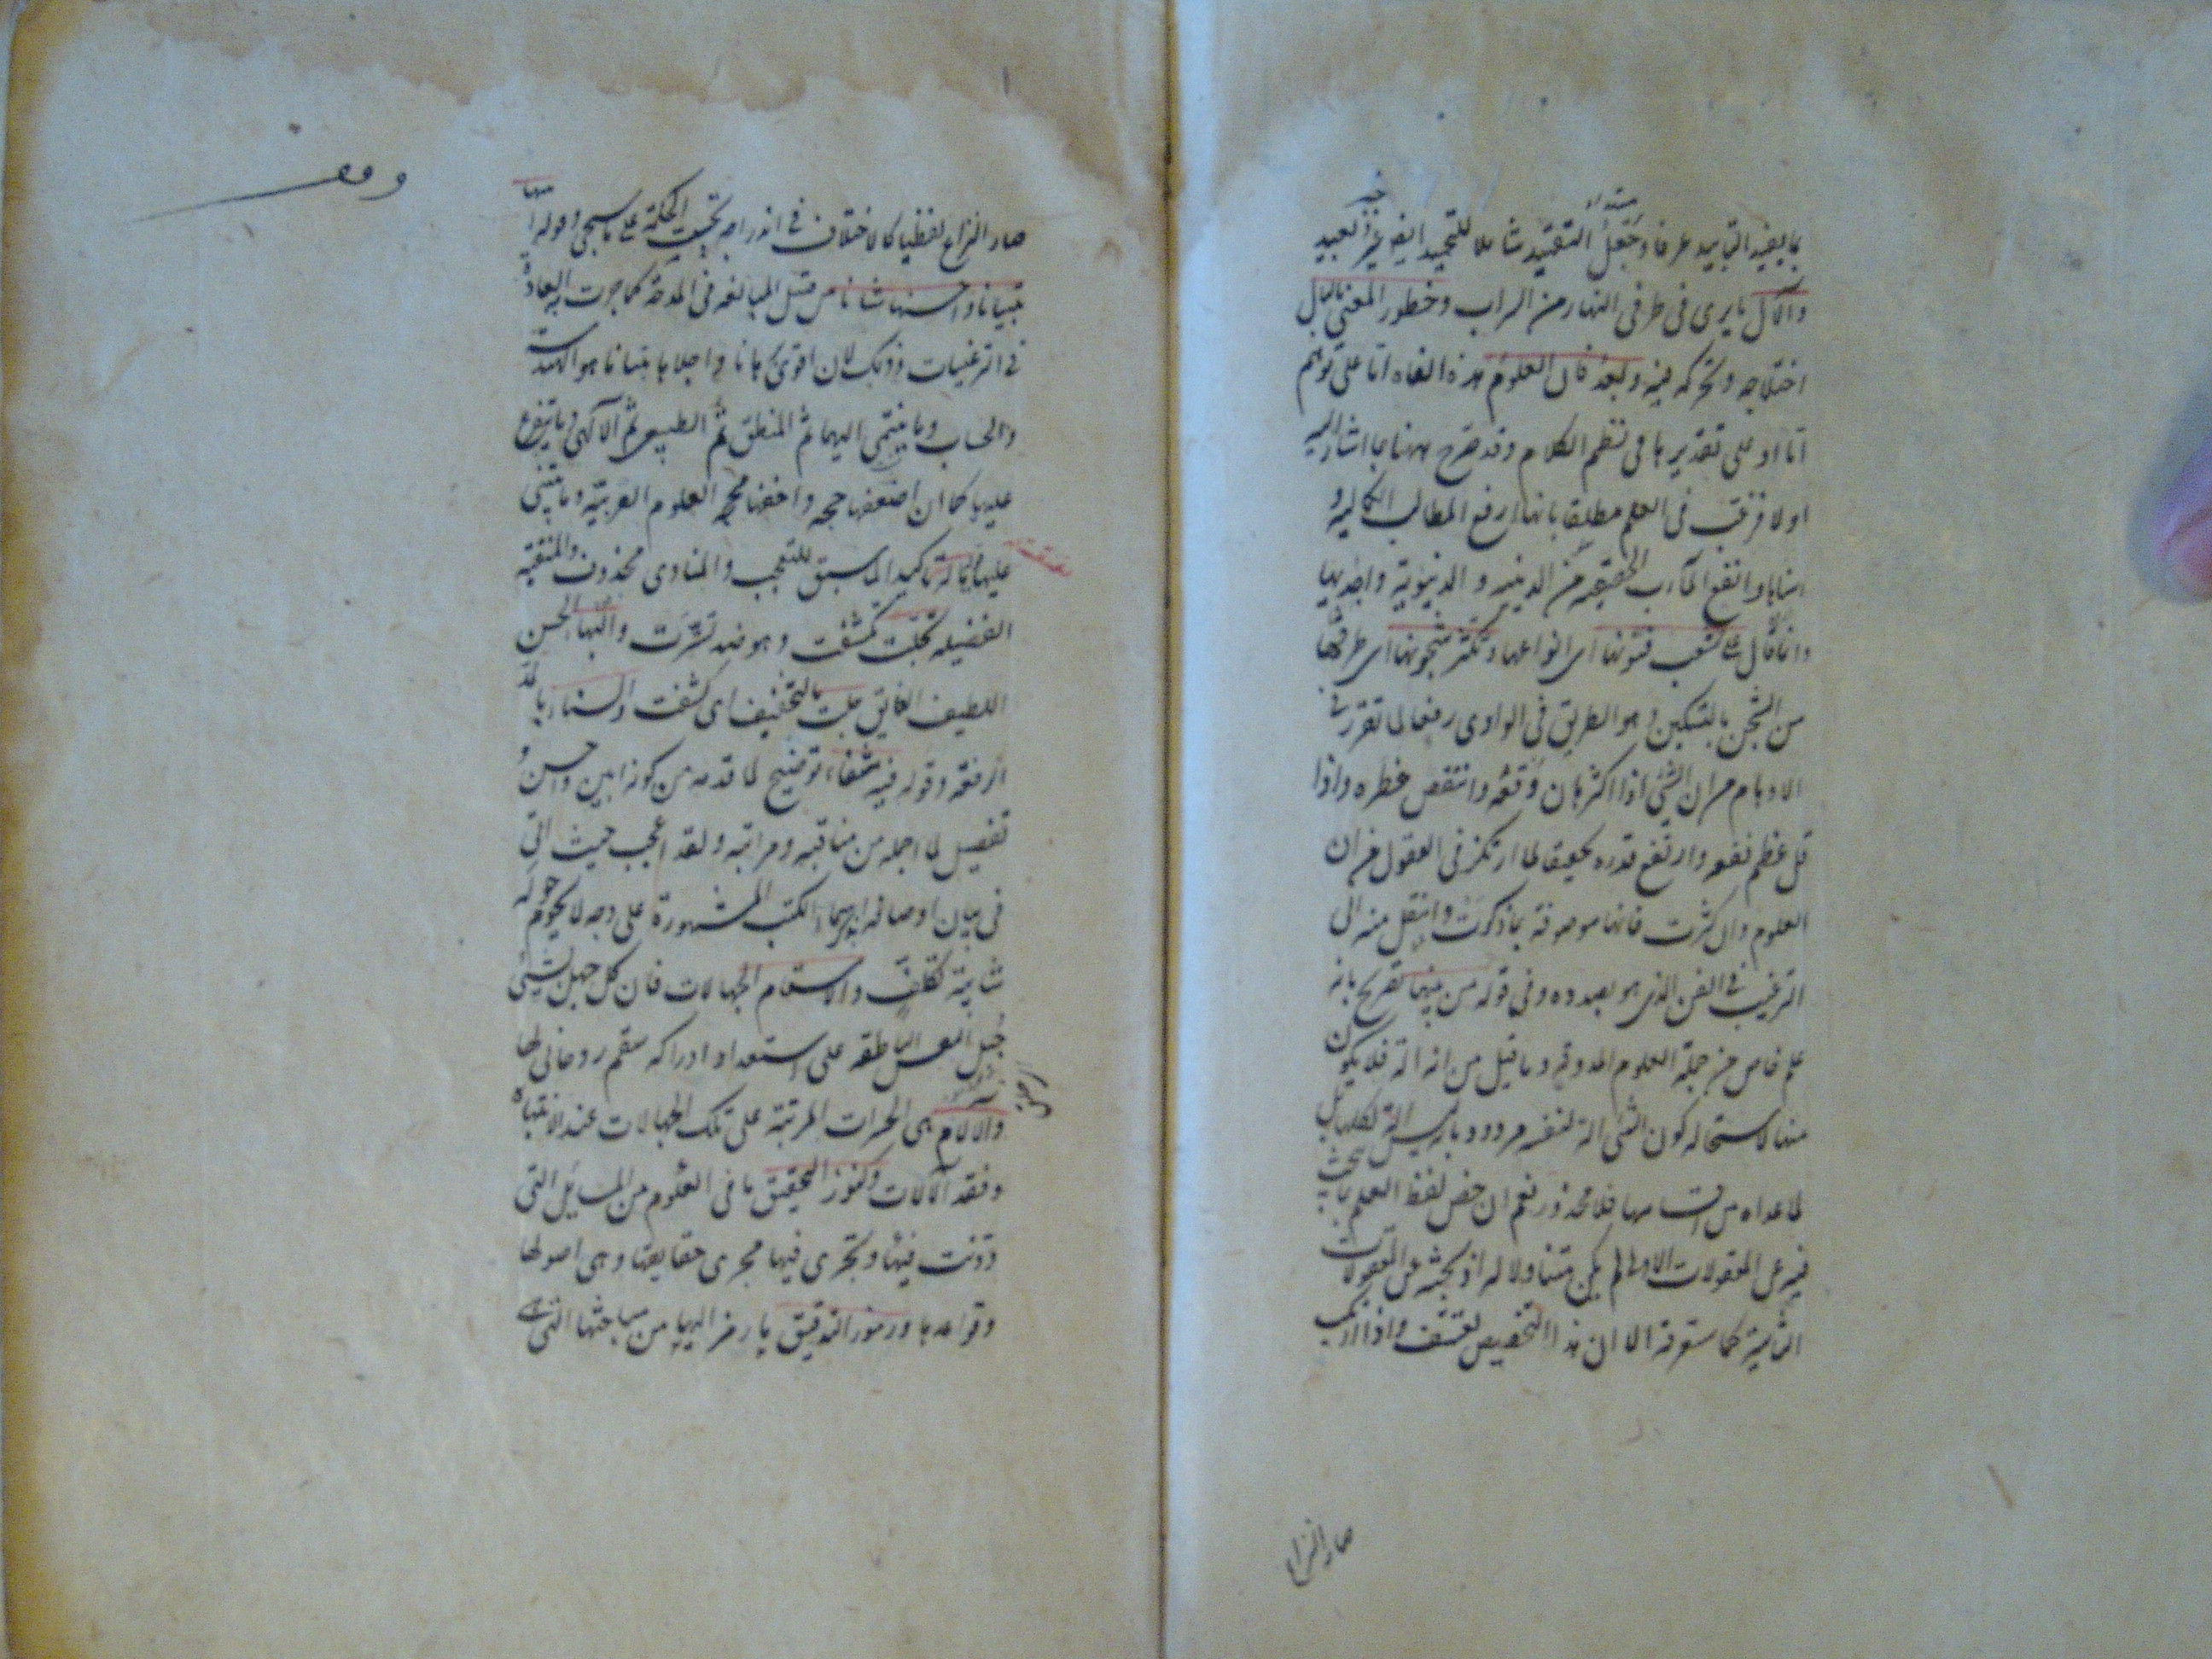 بما يفيد التأبيد عرفا وجعل التقييد شاملا للتحميد ايضا غير بعيد
والآل ما يرى فى طرفى النهار من السراب وخطور المعنى بالبال
اختلاجه وتحركه فيه وبعد فان العلوم هذه الفاء اما على توهم
اما او على تقديرها فى نظم الكلام وقد صرح ههنا بما اشار اليه
اولا فرغب فى العلم مطلقا بانها ارفع المطالب الكمالية و
اسناها وانفع المآرب الحقيقية من الدينية والدنيوية واجداها
وانما قال على تشعب فنونها اى انواعها وتكثر شجونها اى طرقها
من الشجن بالتسكين وهو الطريق فى الوادى رفعا لما تقرر فى
الاوهام من ان الشئ اذا اكثر هان وقعه وانتقص خطره واذا
قل عظم نفعه وارتفع قدره تحقيقا لما ارتكز فى العقول من ان
العلوم وان كثرت فانها موصوفة بما ذكرت وانتقل منه الى
الترغيب فى الفن الذى هو بصدده وفى قوله من بينها تصريح بانه
علم خاص من جملة العلوم المدونة وما قيل من انه آلة فلا يكون
منها لاستحالة كون الشئ آلة لنفسه مردود بانه ليس آلة لكلها بل
لما عداه من اقسامها فلا محذور نعم ان خص لفظ العلم بما يبحث
فيه عن المعقولات الاولى لم يكن متناولا له اذ يبحث عن المعقولات
الثانية كما ستعرفه الا ان هذا التخصيص تعسف واذا ارتكب
صار النزا
صار النزاع لفظيا كالاختلاف فى اندراجه تحت الحكمة على ما سيجئ وقوله انها
تبيانا واحسنها شانا من قبيل المبالغة فى المدحة كما جرت به العادة
فى الترغيبات وذلك لان اقوى برهانا واجلاها تبيانا هو الهندسة
والحساب وما ينتمى اليهما ثم المنطق ثم الطبيعى ثم الالهى وما يتفرع
عليها كما ان اضعفها حجة واخفها محجة العلوم العربية وما يبتنى
عليها فيا له تاكيد لما سبق للتعجب والمنادى محذوف والمنقبة
الفضيلة تجلت تكشفت وهو ضد تسترت والبهاء الحسن
اللطيف الفائق جلت بالتخفيف اى كشفت والسناء بالمد
الرفعة وقوله فيه شفاء توضيح لما قدمه من كونه ابين واحسن و
تفصيل لما اجمله من مناقبه ومراتبه ولقد اعجب حيث اتى
فى بيان اوصافه باسماء الكتب المشهورة على وجه لا يحوم حوله
شائبة تكلف والاسقام الجهالات فان كل جهل بشئ
جبل النفس الناطقة على استعداد ادراكه سقم روحانى لها
والآلام هى الحسرات المرتبة على تلك الجهالات عند الانتباه
وفقد الآلات وكنوز التحقيق ما فى العلوم من المسائل التى
دونت فيها وتجرى فيها مجرى حقايقها وهى اصولها
وقواعدها ورموز التدقيق ما رمز اليها من مباحثها التى